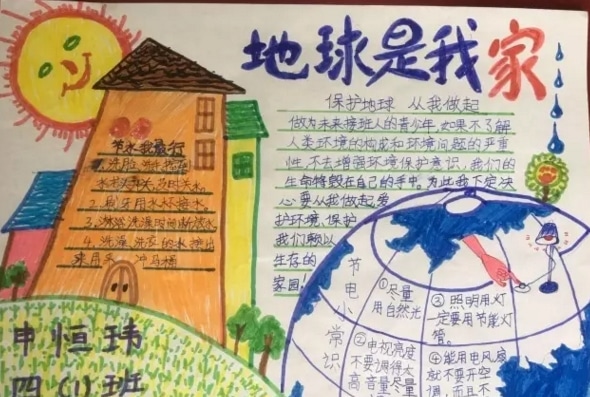 地球是我家
保护地球 从我做起
做为未来接班人的青少年,如果不了解
人类环境的构成和环境问题的严重
性,不去增强环境保护意识,我们的
生命将毁在自己的手中。为此我下定决
心要从我做起,爱
护环境,保护
我们赖以
生存的
家园!
节水我最行
2.刷牙用水杯接水。
4.洗澡、洗衣的水接出
来用来 冲马桶
申恒玮
四(1)班
节电小常识
①尽量
用自然光
②电视亮度
不要调得太
高音量尽量
③照明用灯
一定要用节能灯
管。
④能用电风扇
就不要开空
调,而且不